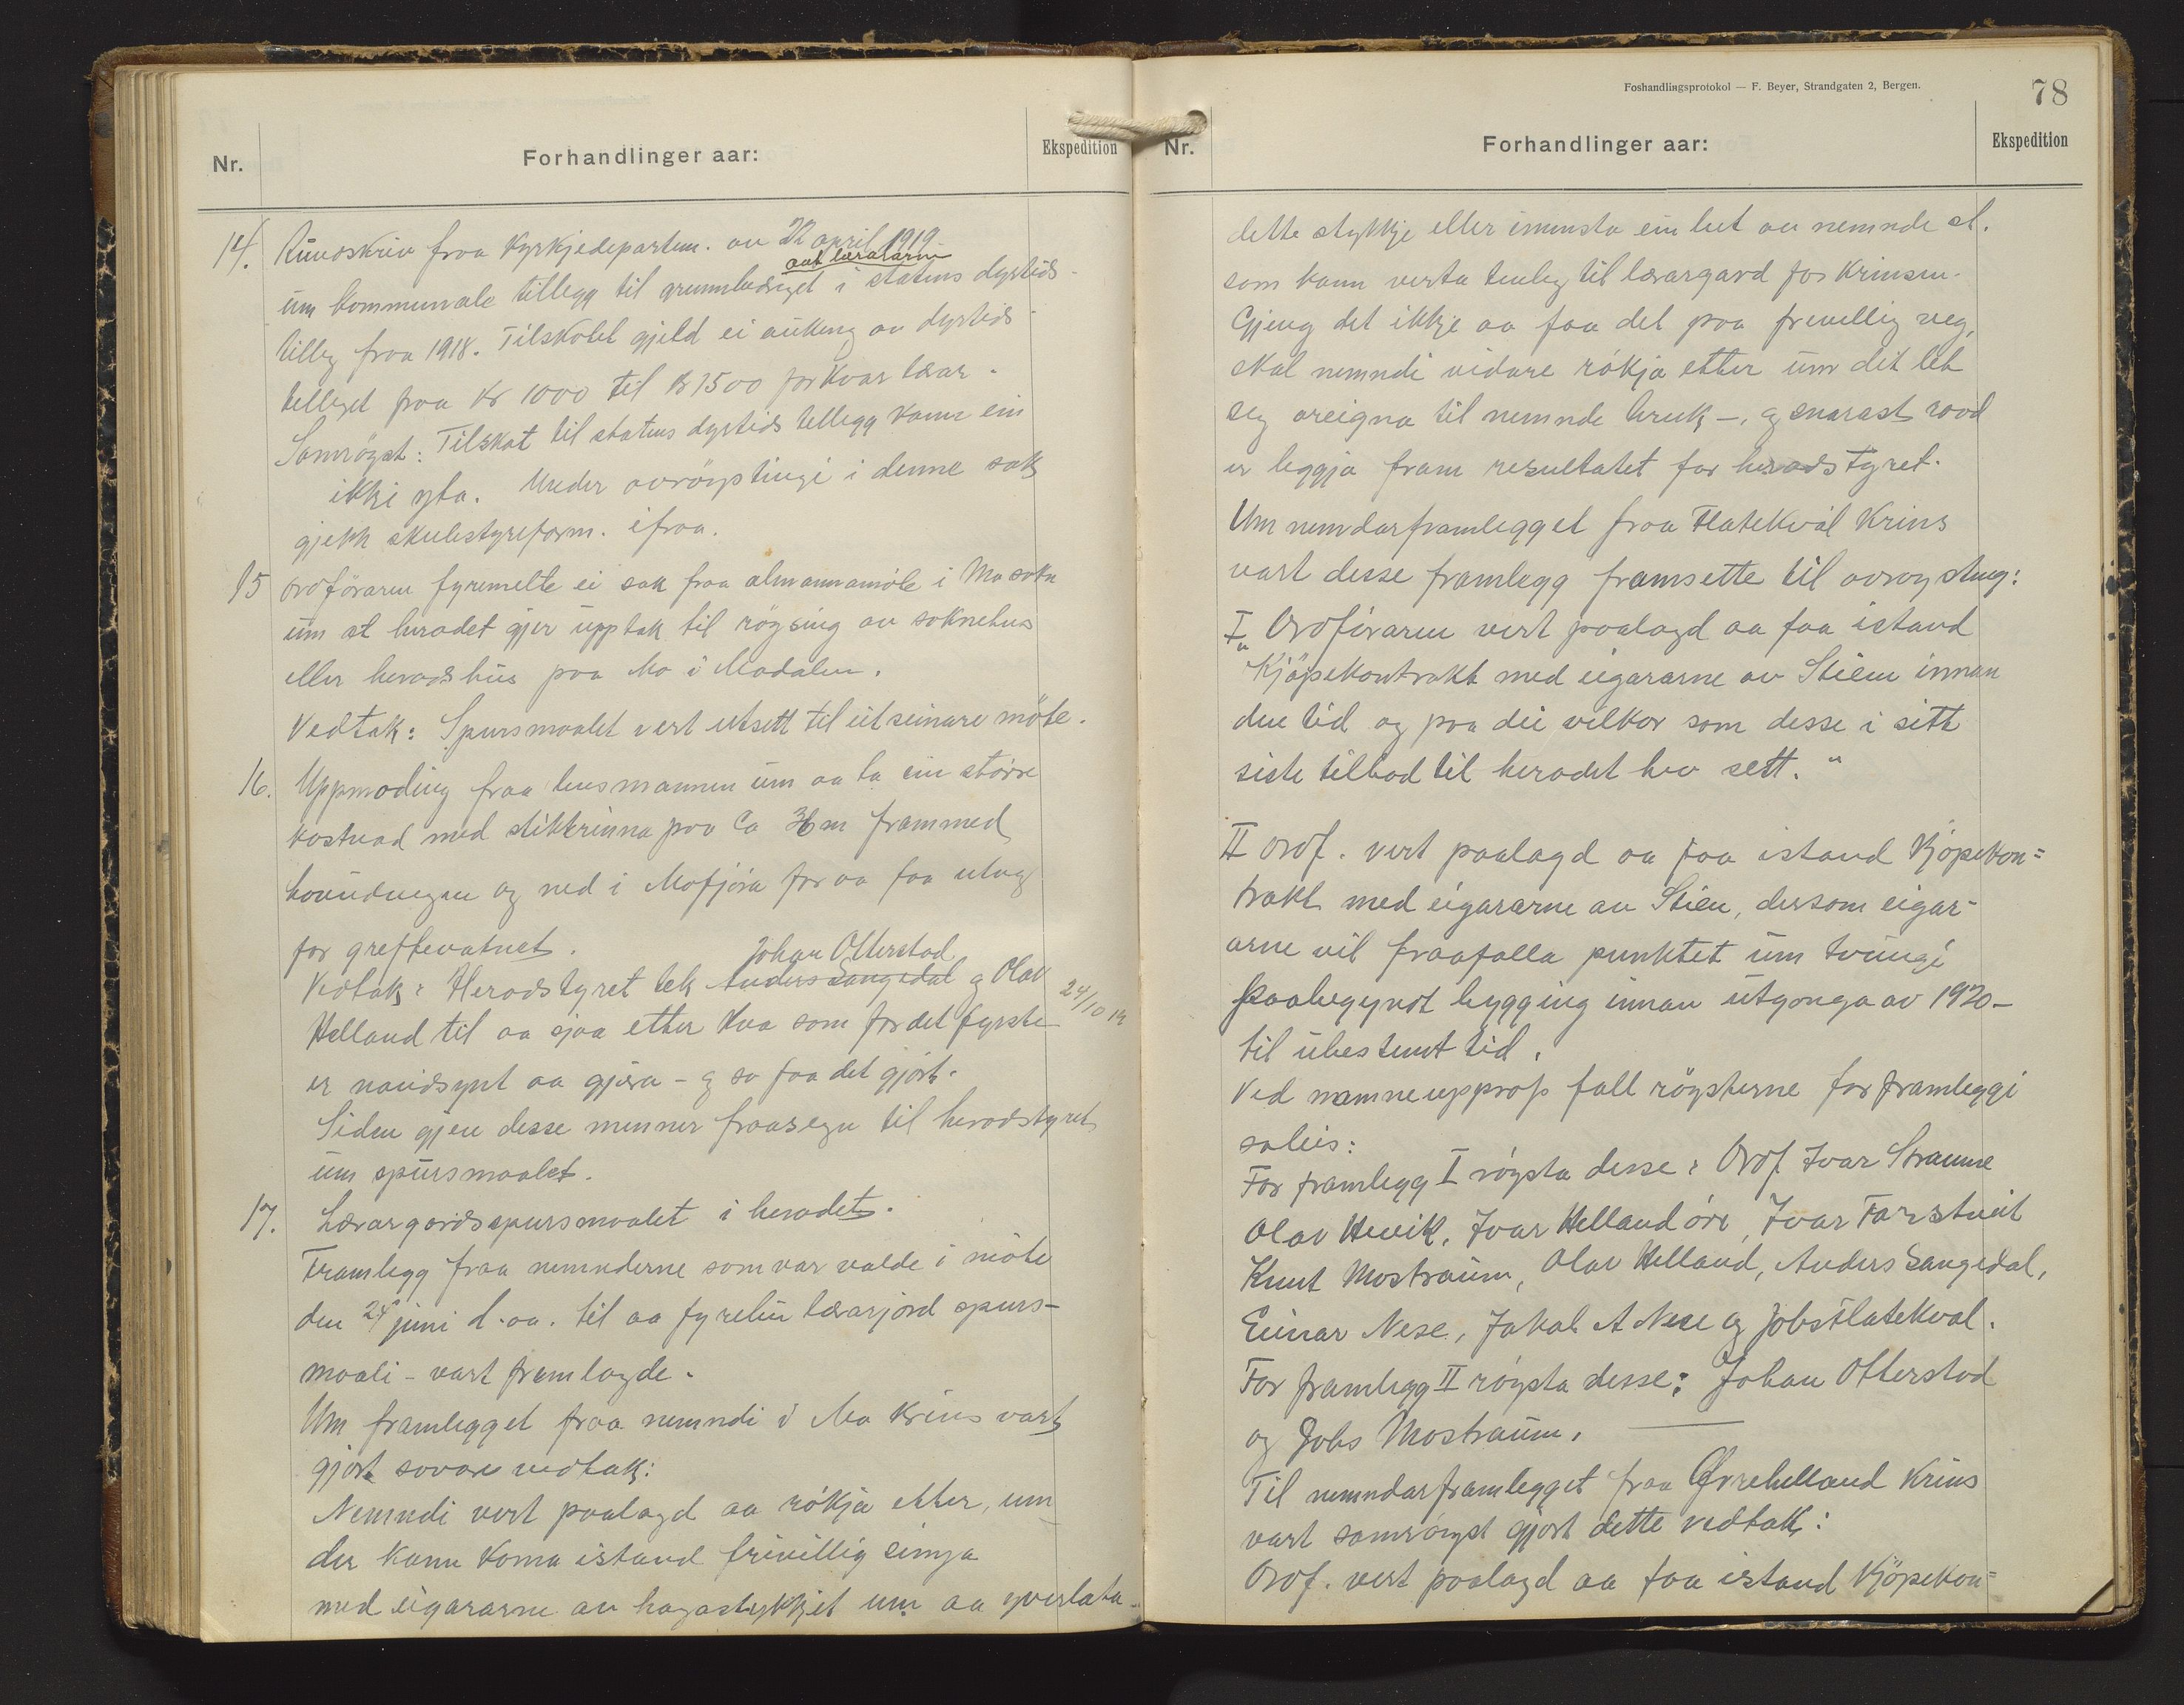 Nr.
Forhandlinger aar:
Ekspedition
14. Rundskriv fraa Kyrkjedepartem. av 22 april 1919
um kommunale tillegg til grunnlæriget aat lærararne i statens dyrtids-
tillegg fraa 1918. Tilskotet gjeld ei auking av dyrtids-
tillegget fraa Kr 1000 til Kr 1500 for kvar lærar.
Samröyst: Tilskot til statens dyrtids tillegg kann ein
ikkje yta. Under avröystingi i denne sak
gjekk skulestyreform. ifraa.
15 Ordföraren fyremelte ei sak fraa almannamöte i Mo sokn
um at heradet gjer upptak til röysing av soknehus
eller heradshus paa Mo i Modalen.
Vedtak: Spursmaalet vert utsett til eit seinare möte.
16. Uppmoding fraa lensmannen um aa ta ein större
kostnad med stikkrinna paa ca 36 m frammed
og ned i Mofjöra for aa faa utlag
for greftevatnet.
Vedtak: Heradstyret tek Anders Langedal Johan Otterstad og Olav
24/10 19
Helland til aa sjaa etter kva som for det fyrste
er naudsynt aa gjera - og so faa det gjort.
Siden gjev desse menner fraasegn til heradstyret
um spursmaalet.
17. Lærargardsspursmaalet i heradet.
Framlegg fraa nemnderne som var valde i möte
den 24 juni d. aa. til aa fyrebu lærarjord spurs-
maali - vart framlagde.
Um framlegget fraa nemndi i Mo Krins vart
gjort sovore vedtak:
Nemndi vert paalagd aa rökja etter, um
der kann koma istand frivillig semja
med eigararne av hagastykkjet um aa yverlata
Foshandlingsprotokol — F. Beyer, Strandgaten 2, Bergen.
78
Nr.
Forhandlinger aar:
Ekspedition
dette stykkje eller iminsta ein lut av nemnde st.
som kann verta tenleg til lærargard for Krinsen.
Gjeng det ikkje aa faa det paa frivillig veg,
skal nemndi vidare rökja etter um det let
seg oreigna til nemnde bruk -, og snarast raad
er leggja fram resultatet for heradstyret.
Um nemdarframlegget fraa Flatekvål Krins
vart desse framlegg framsette til avroysting:
I „Ordföraren vert paalagd aa faa istand
Kjöpekontrakt med eigararne av Stien innan
den tid og paa dei vilkor som desse i sitt
siste tilbod til heradet hev sett."
II Ordf. vert paalagd aa faa istand Kjöpekon=
trakt med eigararne av Stien, dersom eigar-
arne vil fraafalla punktet um tvungi
paabegyndt bygging innan utgonga av 1920-
til ubestemt tid.
Ved namneupprop fall röysterne for framleggi
soleis:
For framlegg I röysta desse: Ordf Ivar Straume
Olav Hevik, Ivar Helland övr, Ivar Farestveit
Knut Mostraum, Olav Helland, Anders Langedal,
Einar Nese, Jakob A Nese og Johs Flatekval.
For framlegg II röysta desse: Johan Otterstad
og Johs Mostraum.
Til nemndarframlegget fraa Övrehelland Krins
vart samröyst gjort dette vedtak:
Ordf. vert paalagd aa faa istand Kjöpekon=